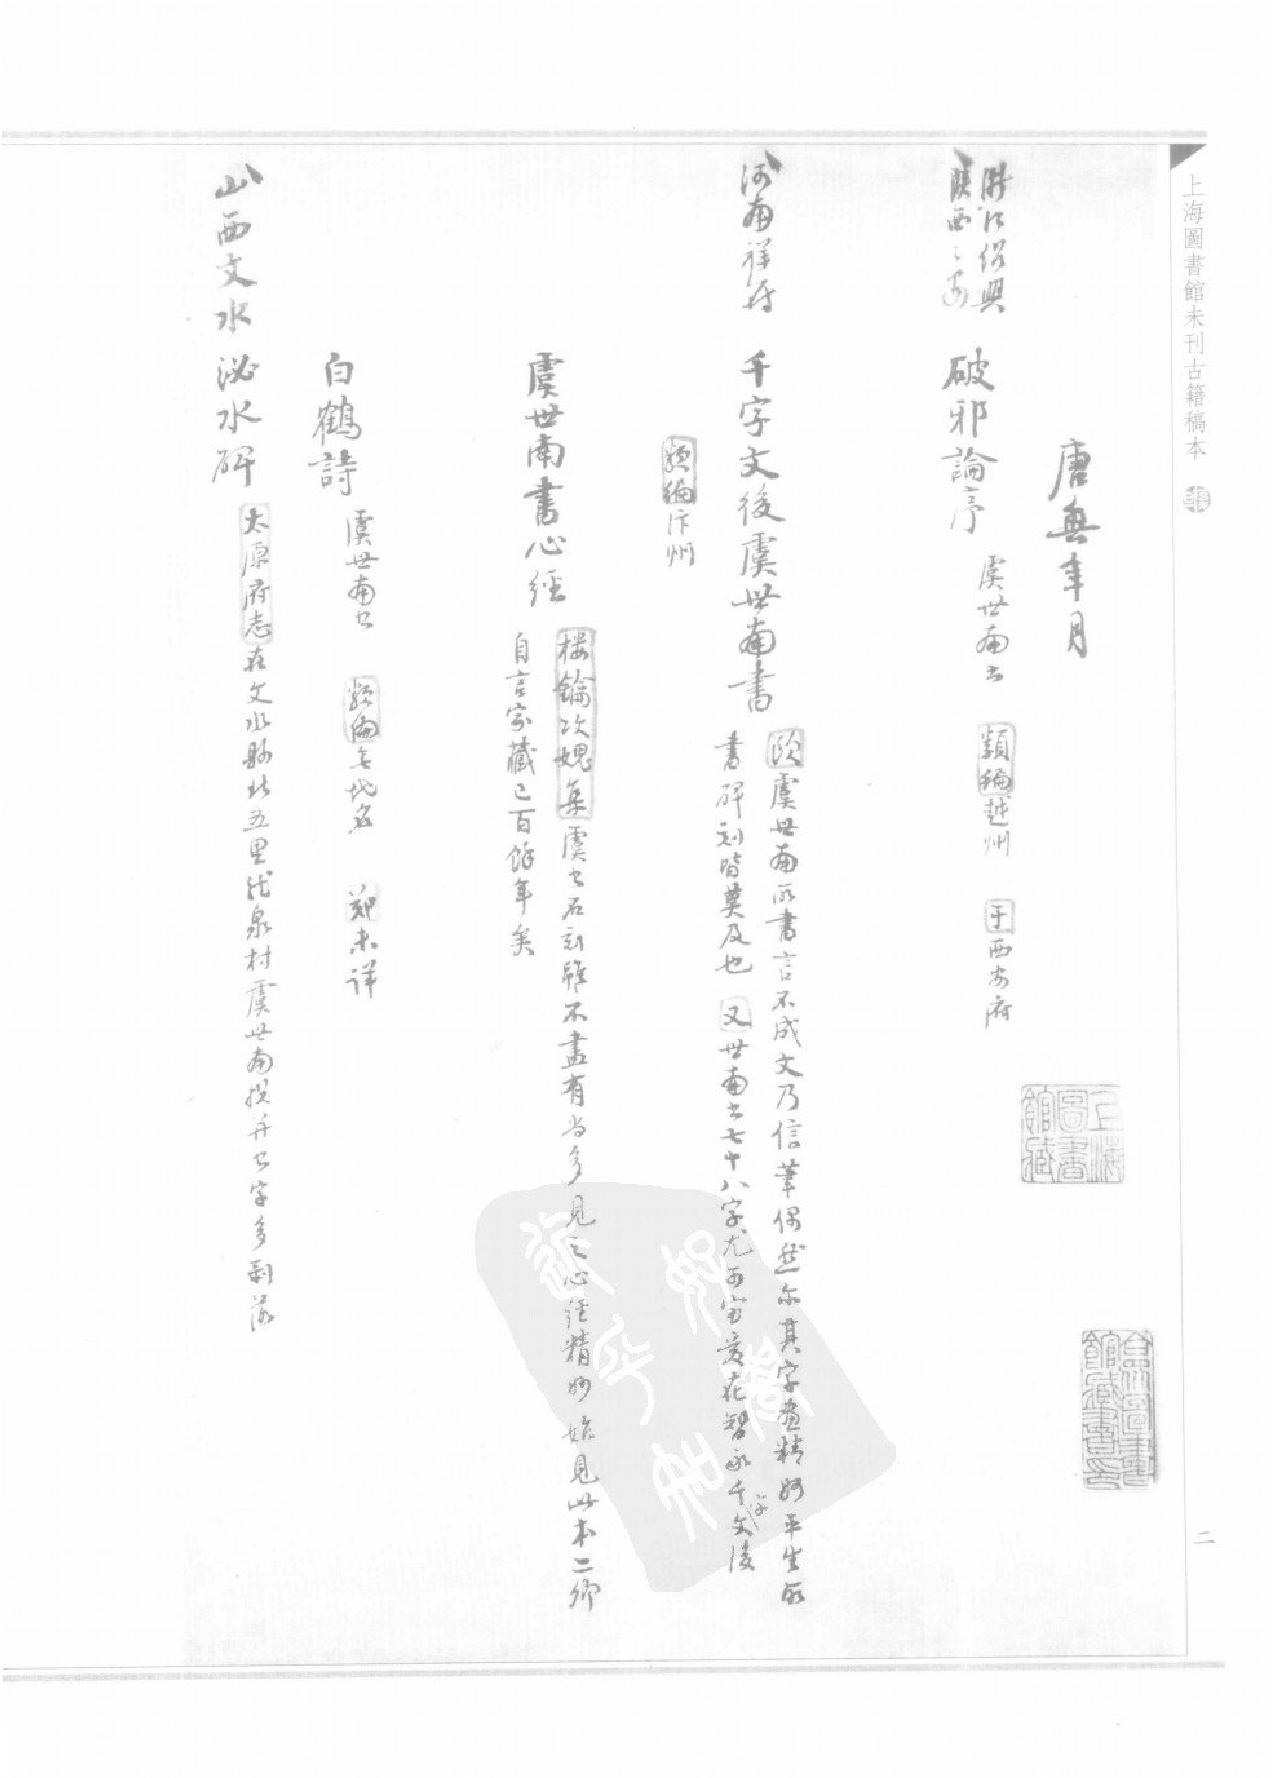 上海圖書館未刊古籍稿本
二
上海圖書館藏
唐無年月
浙江紹興
陝西西安
破邪論序
虞世南書 類編越州 于西安府
河南祥符
千字文後虞世南書
歐虞世南所書言不成文乃信筆偶然尔其字畫精妙平生所
書碑刻皆莫及也 又世南書七十八字尤可寶愛在智永千字文後
類編汴州
虞世南書心經
樓鑰攻媿集虞書石刻雖不盡有尚多見之心經精妙始見此本二卿
自言家藏已百餘年矣
白鶴詩
虞世南書 類編無地名 鄭未詳
山西文水
泌水碑
太原府志在文水縣北五里龍泉村虞世南撰并書字多剥落